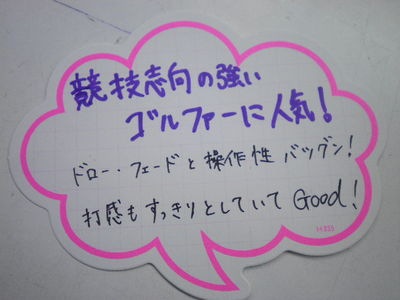 競技志向の強い
ゴルファーに人気!
ドロー・フェードと操作性 バツグン!
打感もすっきりとしていて Good!